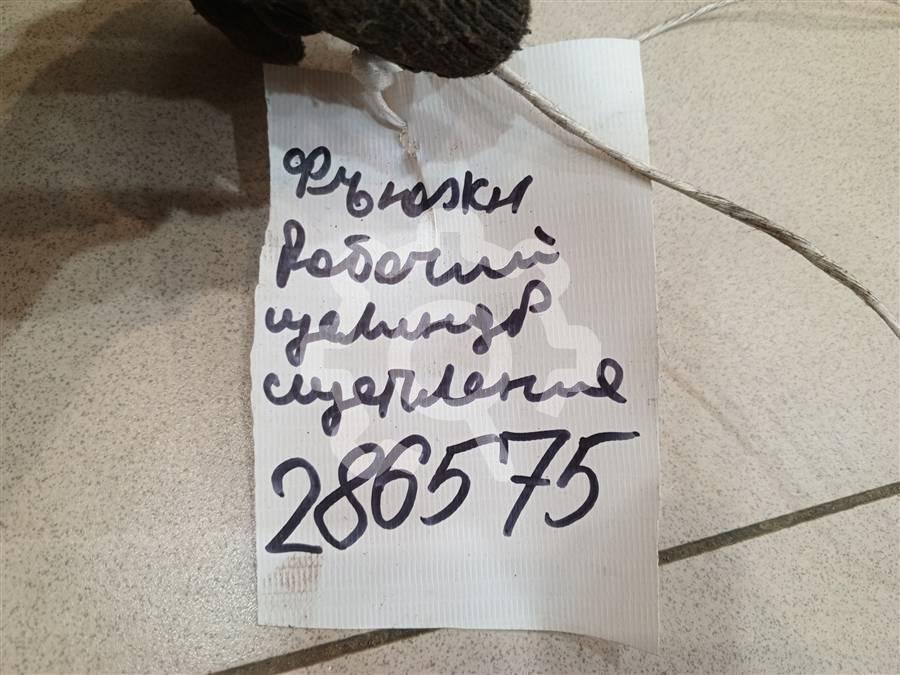 Фрьюжн
Рабочий
целиндр
сцепление
286575